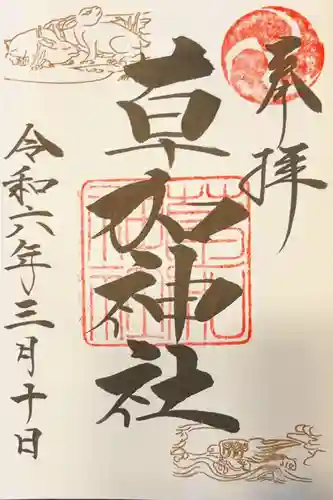 奉拝
草加神社
令和六年三月十日